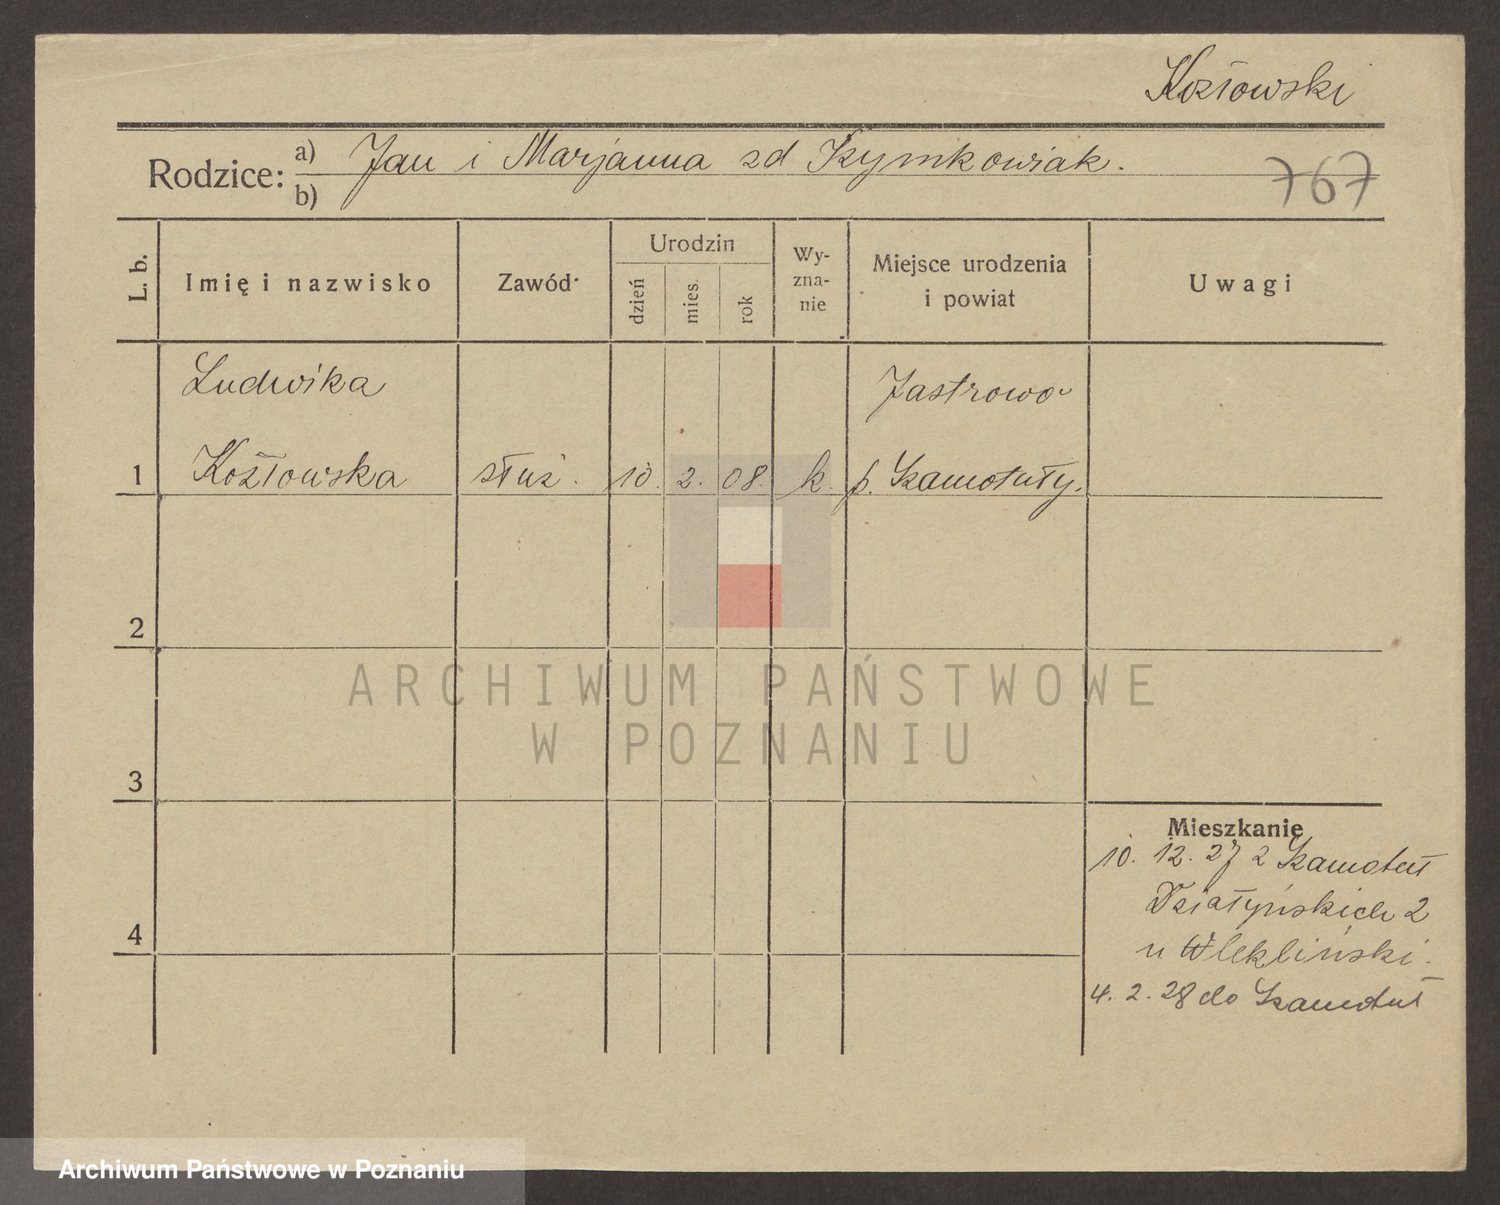 Kozłowski
Rodzice: a) Jan i Marjanna zd Szymkowiak.
b)
767
L. b.
Imię i nazwisko
Zawód
Urodzin
dzień
mies.
rok
Wy-
zna-
nie
Miejsce urodzenia
i powiat
Uwagi
Ludwika
Jastrowo
1 Kozłowska służ. 10. 2. 08. k. p. Szamotuły.
2
3
4
Mieszkanie
10. 12. 27 z Szamotuł
Działyńskich 2
u Wlekliński.
4. 2. 28 do Szamotuł
ARCHIWUM PAŃSTWOWE
W POZNANIU
Archiwum Państwowe w Poznaniu